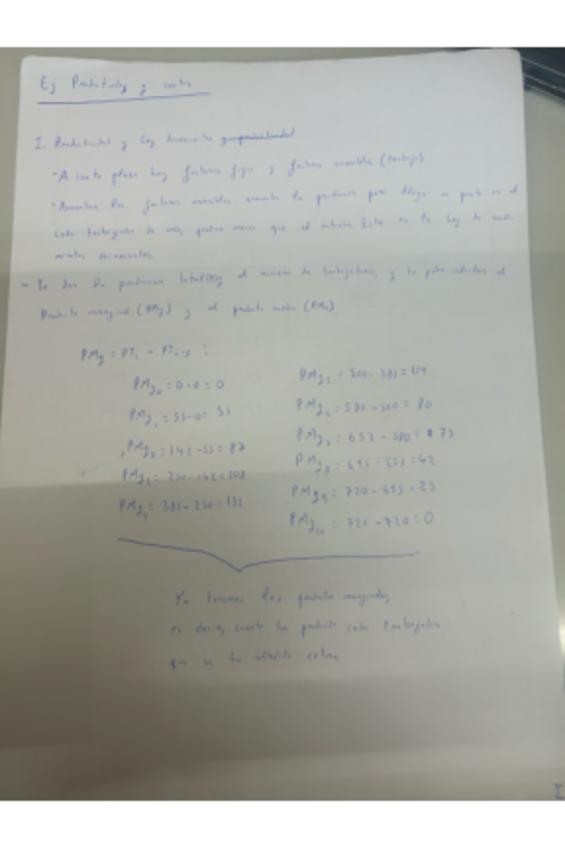 Ej Productividad y costes
I. Productividad y ley decreciente
"A corto plazo hay factores fijos y factores variables (trabajo)
"Aumentar los factores variables aumenta la producción pero llega un punto en el
cada trabajador de más, produce menos que el anterior. Esta es la ley de rendi-
mientos decrecientes.
- Te dan la producción total el número de trabajadores, y te piden calcular el
Producto marginal (PMg) y el producto medio (PMe)
PMg = PTi - PTi-1 :
PMg0 = 0-0 = 0
PMg1 = 55-0 = 55
PMg2 = 142 - 55 = 87
PMg3 = 250 - 142 = 108
PMg4 = 381 - 250 = 131
PMg5 = 500 - 381 = 119
PMg6 = 580 - 500 = 80
PMg7 = 653 - 580 = 73
PMg8 = 695 - 653 = 42
PMg9 = 720 - 695 = 25
PMg10 = 720 - 720 = 0
Ya tenemos los productos marginales,
es decir, cuanto ha producido cada trabajador
que se ha añadido extra